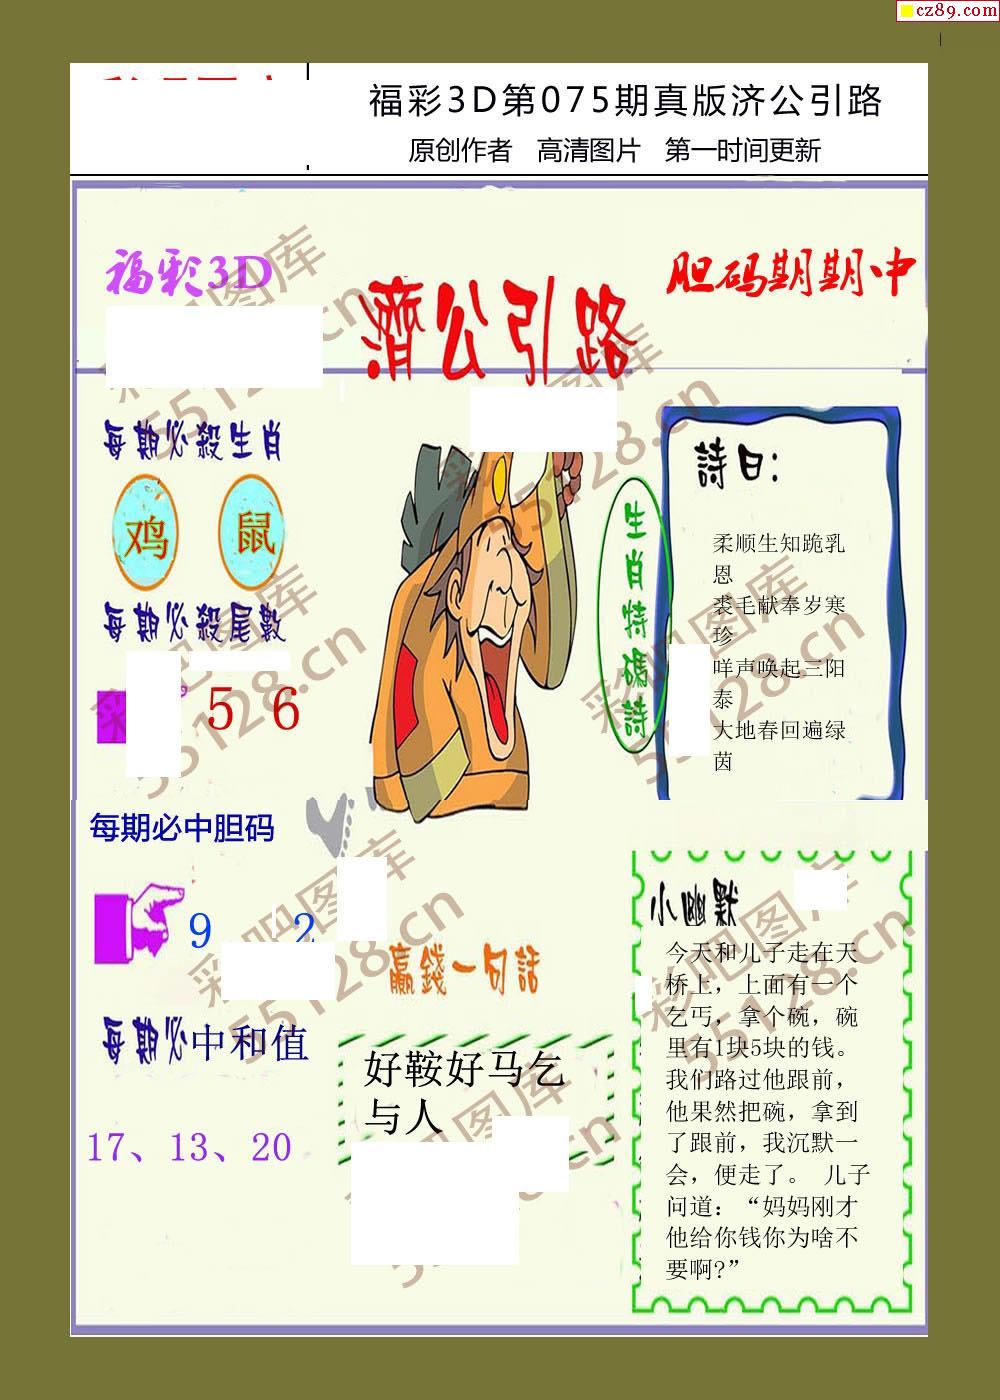 cz89.com
福彩3D第075期真版济公引路
原创作者 高清图片 第一时间更新
福彩3D
濟公引路
胆码期期中
每期必殺生肖
鸡 鼠
每期必殺尾數
5 6
每期必中胆码
9 2
每期必中和值
17、13、20
生肖特碼詩
詩曰：
柔顺生知跪乳
恩
裘毛献奉岁寒
珍
咩声唤起三阳
泰
大地春回遍绿
茵
贏錢一句話
好鞍好马乞
与人
小幽默
今天和儿子走在天
桥上，上面有一个
乞丐，拿个碗，碗
里有1块5块的钱。
我们路过他跟前，
他果然把碗，拿到
了跟前，我沉默一
会，便走了。 儿子
问道：“妈妈刚才
他给你钱你为啥不
要啊?”
彩吧图库
55128.cn
彩吧图库
55128.cn
彩吧图库
55128.cn
彩吧图库
55128.cn
彩吧图库
55128.cn
彩吧图库
55128.cn